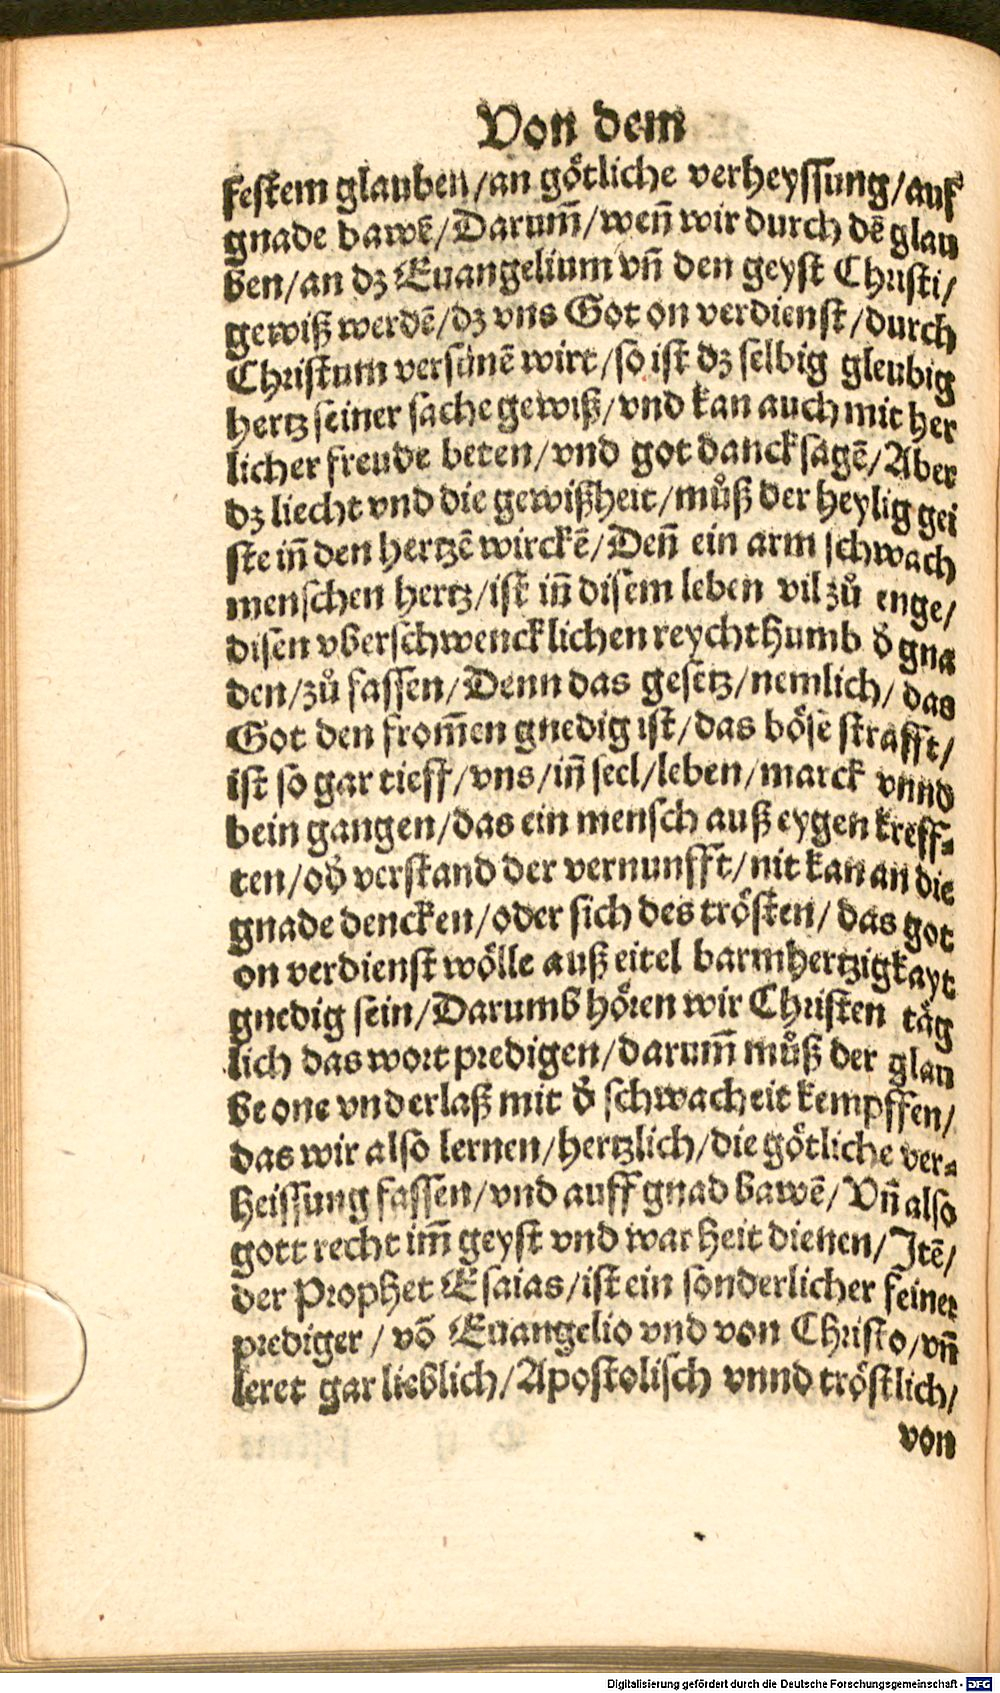 Von dem
festem glauben/an götliche verheyssung/auf
gnade bawẽ/Darum̃/wen̄ wir durch dẽ glau
ben/an dz Euangelium vn̄ den geyst Christi/
gewiß werdẽ/dz vns Got on verdienst/durch
Christum versünẽ wirt/so ist dz selbig gleubig
hertz seiner sache gewiß/vnd kan auch mit her
licher freude beten/vnd got dancksagẽ/Aber
dz liecht vnd die gewißheit/můß der heylig gei
ste in̄ den hertzẽ wirckẽ/Den̄ ein arm schwach
menschen hertz/ist in̄ disem leben vil zů enge/
disen vberschwencklichen reychthumb d̓ gna
den/zů fassen/Denn das gesetz/nemlich/das
Got den from̄en gnedig ist/das böse strafft/
ist so gar tieff/vns/in̄ seel/leben/marck vnnd
bein gangen/das ein mensch auß eygen kreff-
ten/od̓ verstand der vernunfft/nit kan an die
gnade dencken/oder sich des trösten/das got
on verdienst wölle auß eitel barmhertzigkayt
gnedig sein/Darumb hören wir Christen täg
lich das wort predigen/darum̃ můß der glau
be one vnderlaß mit d̓ schwacheit kempffen/
das wir also lernen/hertzlich/die götliche ver-
heissung fassen/vnd auff gnad bawẽ/Vn̄ also
gott recht im̃ geyst vnd warheit dienen/Jtẽ/
der Prophet Esaias/ist ein sonderlicher feiner
prediger/võ Euangelio vnd von Christo/vn̄
leret gar lieblich/Apostolisch vnnd tröstlich/
von
Digitalisierung gefördert durch die Deutsche Forschungsgemeinschaft - DFG